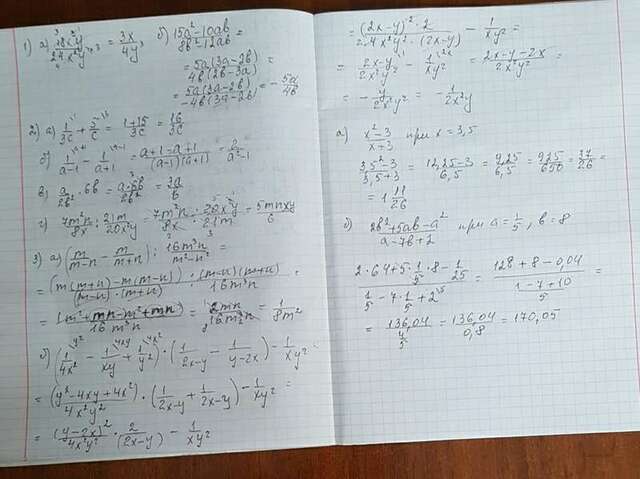 1) a) 18x³y / 24x²y⁴ = 3x / 4y³ б) 15a²-10ab / 8b²-12ab =
= 5a(3a-2b) / 4b(2b-3a) =
= 5a(3a-2b) / -4b(3a-2b) = - 5a / 4b
2) a) 1/3c + 5/c = 1+15 / 3c = 16 / 3c
б) 1/a-1 - 1/a+1 = a+1-a+1 / (a-1)(a+1) = 2 / a²-1
в) a/2b² · 6b = a·6b / 2b² = 3a / b
г) 7m²n / 8x : 21m / 20x²y = 7m²n / 8x · 20x²y / 21m = 5mnxy / 6
3) a) (m/m-n - m/m+n) : 16m³n / m²-n² =
= (m(m+n)-m(m-n)) / (m-n)·(m+n) · (m-n)(m+n) / 16m³n =
= (m²+mn-m²+mn) / 16m³n = 2mn / 16m³n = 1 / 8m²
б) (1/4x² - 1/xy + 1/y²) · (1/2x-y - 1/y-2x) - 1/xy² =
= (y²-4xy+4x²) / 4x²y² · (1/2x-y + 1/2x-y) - 1/xy² =
= (y-2x)² / 4x²y² · 2/(2x-y) - 1/xy²
= (2x-y)²·2 / 2·4x²y²·(2x-y) - 1/xy² =
= 2x-y / 2x²y² - 1/xy² = 2x-y-2x / 2x²y² =
= - y / 2x²y² = - 1 / 2x²y
a) x²-3 / x+3 при x=3,5
3,5²-3 / 3,5+3 = 12,25-3 / 6,5 = 9,25 / 6,5 = 925 / 650 = 37 / 26 =
= 1 11/26
б) 2b²+5ab-a² / a-7b+2 при a=1/5, b=8
2·64+5·1/5·8-1/25 / 1/5-7·1/5+2 = 128+8-0,04 / 1-7+10 / 5 =
= 136,04 / 4/5 = 136,04 / 0,8 = 170,05